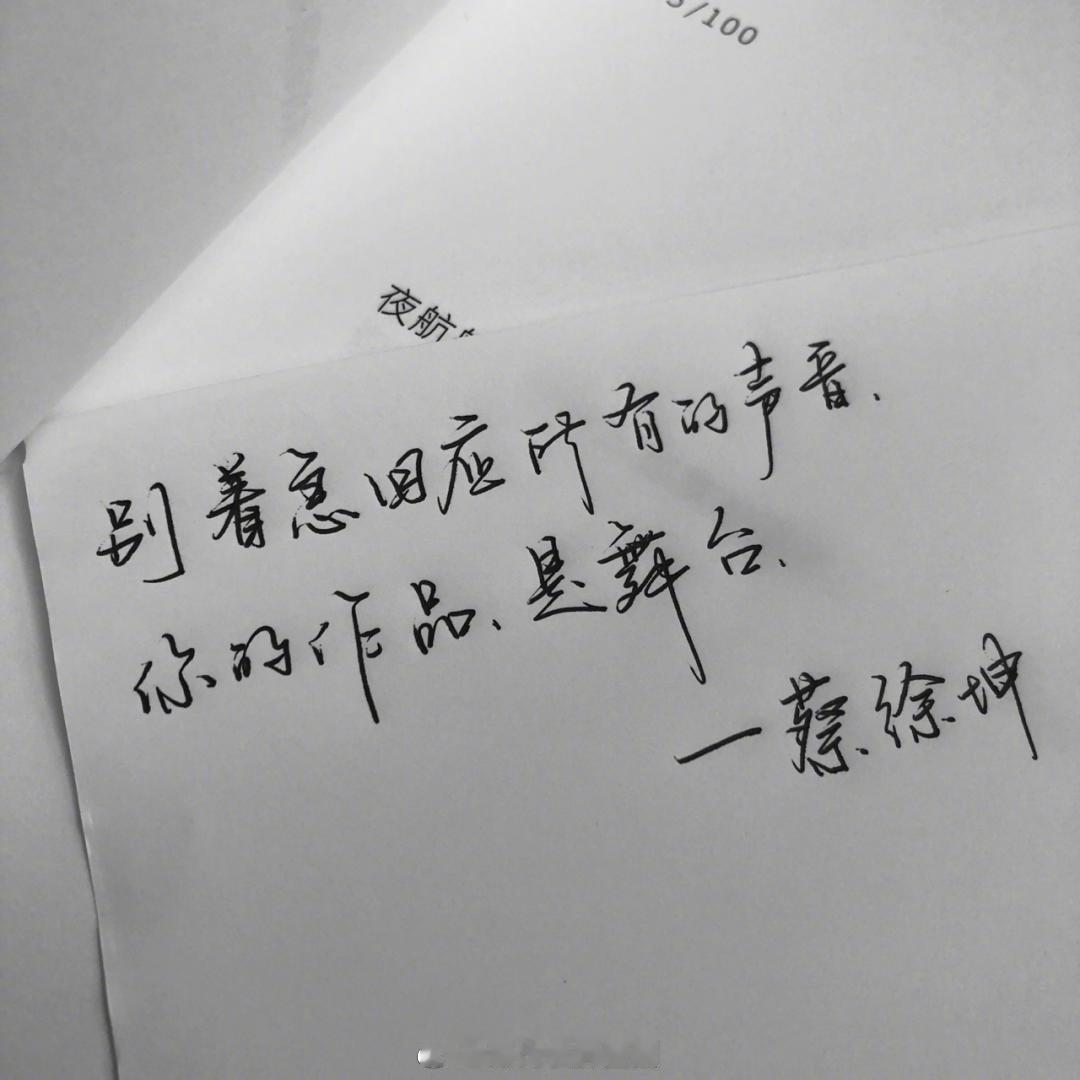 /100
夜航
别着急回应所有的声音.
你的作品、是舞台.
—蔡徐坤